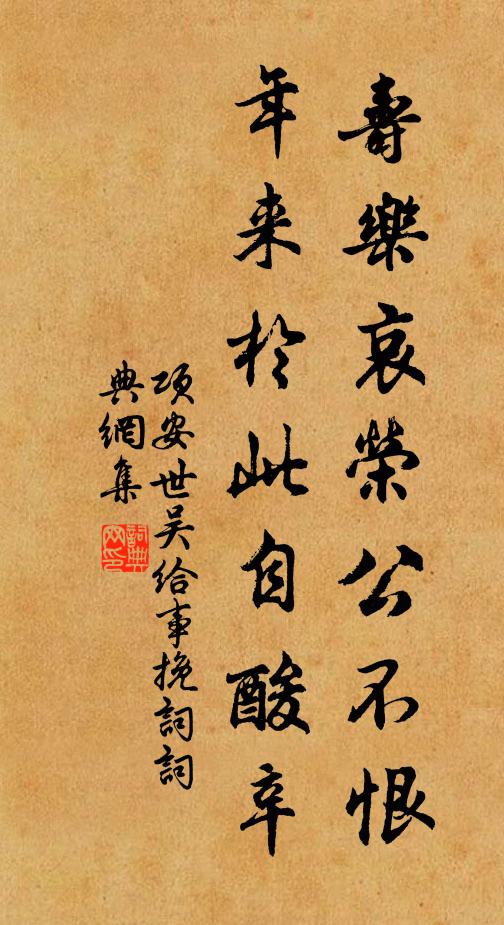 壽樂哀榮公不恨
年来於此自酸辛
项安世吴给事挽詞詞
典網集
詞典
网印